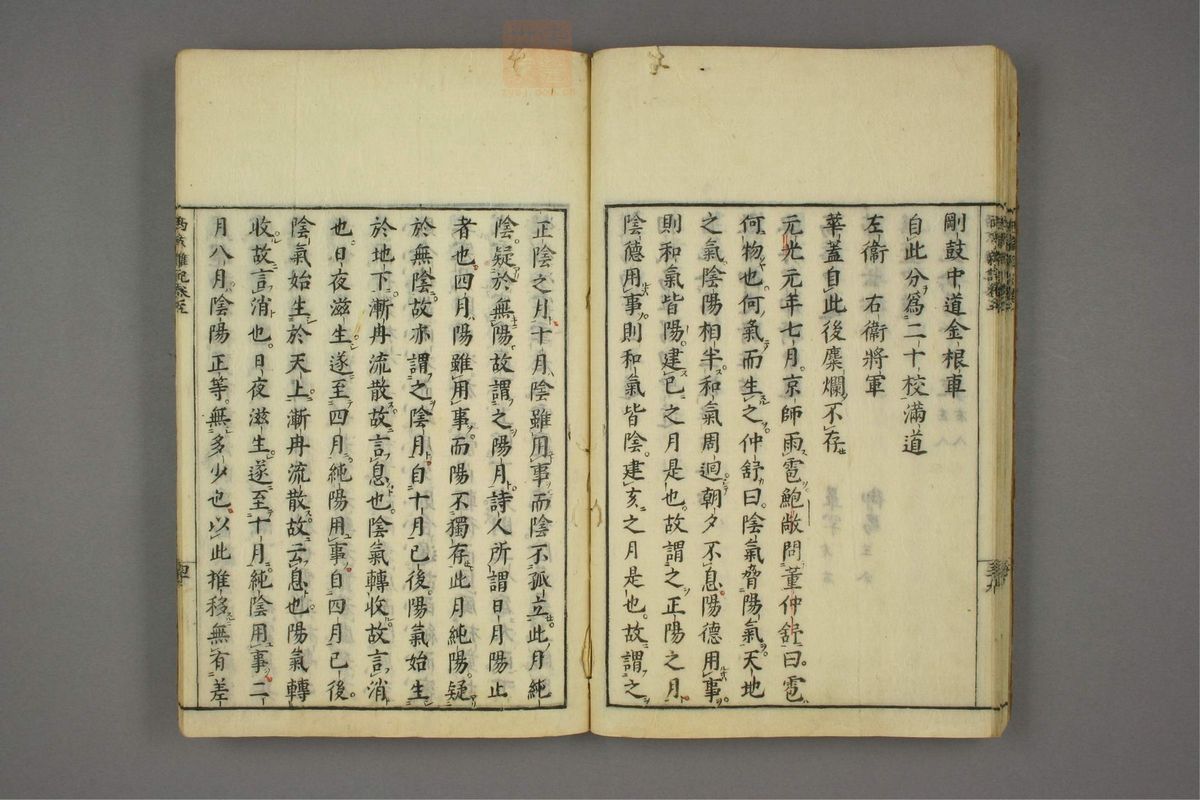 剛鼓中道金根車
自此分爲二十校滿道
左衞 右衞將軍
華蓋自此後麋爛不存
元光元年七月京師雨雹鮑敞問董仲舒曰雹
何物也何氣而生之仲舒曰陰氣脅陽氣天地
之氣陰陽相半和氣周迴朝夕不息陽德用事
則和氣皆陽建巳之月是也故謂之正陽之月
陰德用事則和氣皆陰建亥之月是也故謂之
正陰之月十月陰雖用事而陰不孤立此月純
陰疑於無陽故謂之陽月詩人所謂日月陽止
者也四月陽雖用事而陽不獨存此月純陽疑
於無陰故亦謂之陰月自十月已後陽氣始生
於地下漸冉流散故言息也陰氣轉收故言消
也日夜滋生遂至四月純陽用事自四月已後
陰氣始生於天上漸冉流散故云息也陽氣轉
收故言消也日夜滋生遂至十月純陰用事二
月八月陰陽正等無多少也以此推移無有差